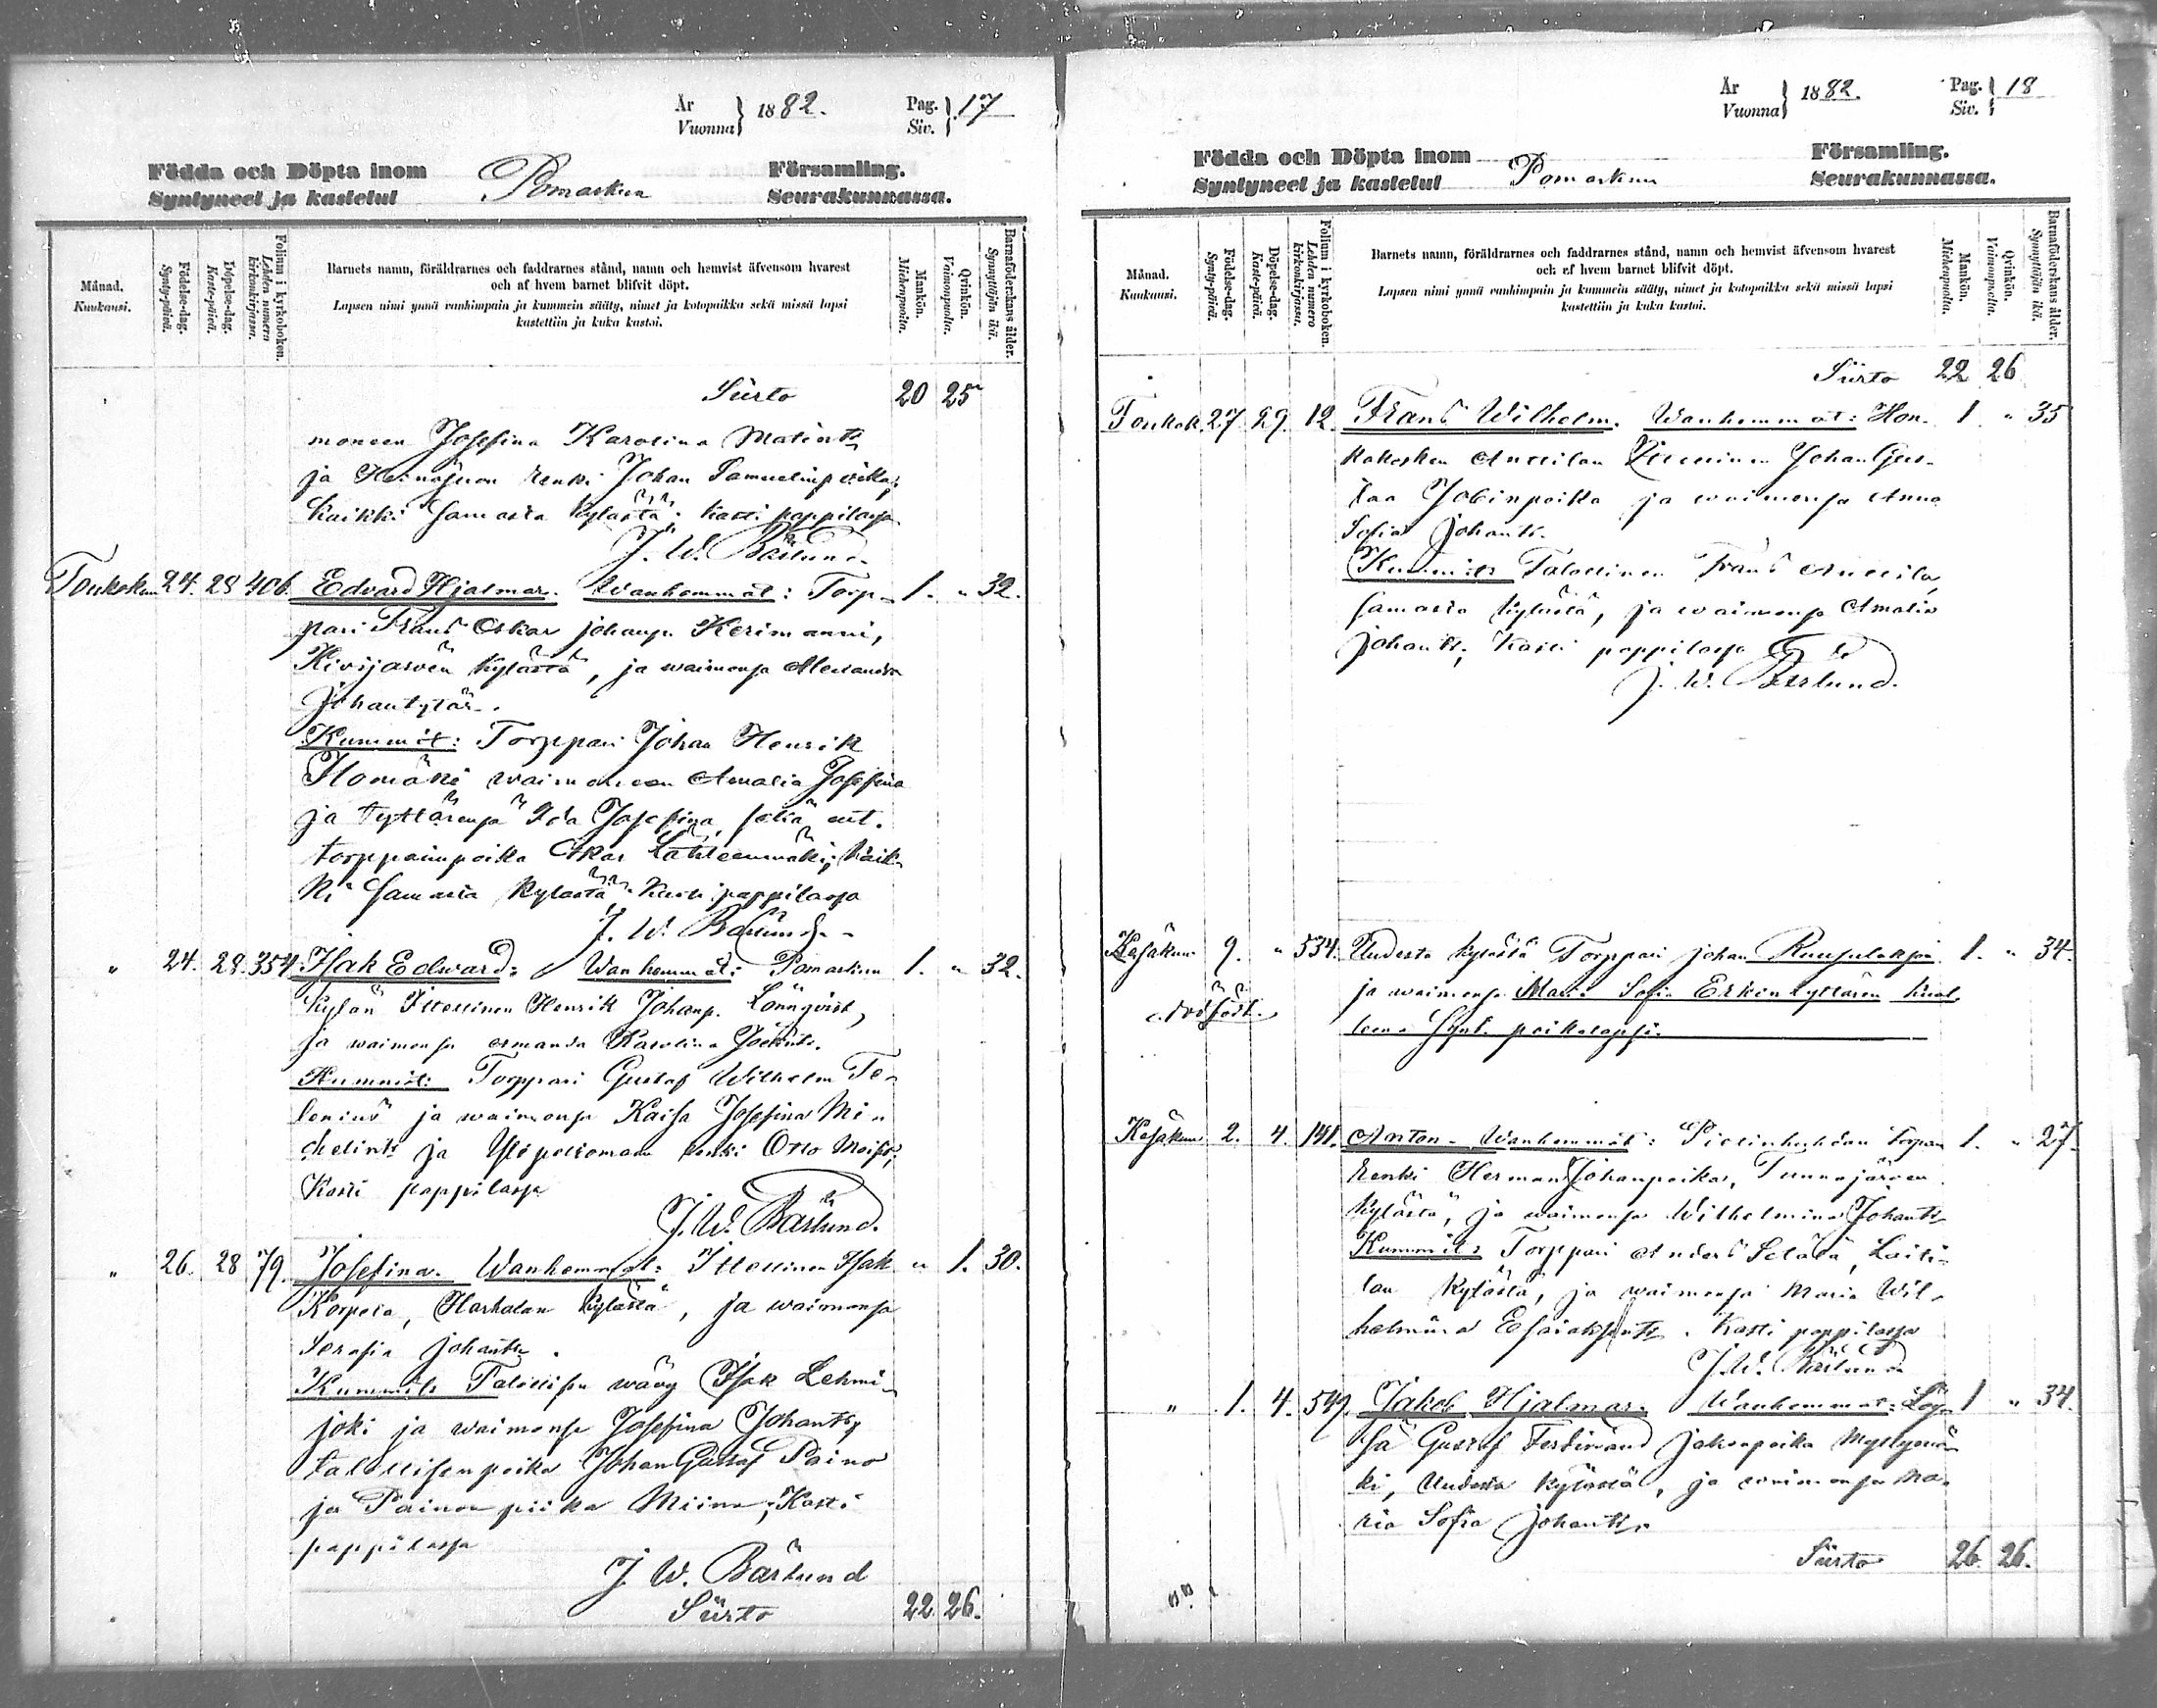 År
Vuonna } 1882. Pag.
Siv. } 17
Födda och Döpta inom Pomarkun Församling.
Syntyneet ja kastetut Seurakunnassa.
Månad.
Kuukausi.
Födelse-dag.
Synty-päivä.
Döpelse-dag.
Kaste-päivä.
Folium i kyrkoboken.
Lehden numero
kirkonkirjassa.
Barnets namn, föräldrarnes och faddrarnes stånd, namn och hemvist äfvensom hvarest
och af hvem barnet blifvit döpt.
Lapsen nimi ynnä vanhimpain ja kummein sääty, nimet ja kotopaikka sekä missä lapsi
kastettiin ja kuka kastoi.
Mankön.
Miehenpuolta.
Qvinkön.
Vaimonpuolta.
Barnaföderskans ålder.
Synnyttäjän ikä.
Siirto 20 25
moneen Josefina Karolina Matintr
ja Heinäjuon renki Johan Samuelinpoika;
kaikki samasta kylästä. Kasti pappilassa
J. W. Bärlund.
Toukokuu 24. 28 406. Edvard Hjalmar. Wanhemmat: Torp- 1. " 32.
pari Frans Oskar Johanp. Kerimanni,
Kivijärven kylästä, ja waimonsa Alexandra
Johantytär.
Kummit: Torppari Johan Henrik
Ilomäki waimoneen Amalia Josefina
ja tyttärensä Ida Josefina, sekä ent.
torpparinpoika Oskar Lähteenmäki; kaik-
ki samasta kylästä. Kasti pappilassa
J. W. Bärlund.
" 24. 28. 354. Isak Edward: Wanhemmat: Pomarkun 1. " 32.
kylän Itsellinen Henrik Johanp. Lönnqvist,
ja waimonsa Amanda Karolina
Kummit: Torppari Gustaf Wilhelm Te-
lenius ja waimonsa Kaisa Josefina Mi-
chelintr ja renki Otto
Kasti pappilassa
J. W. Bärlund.
" 26. 28 79. Josefina. Wanhemmat: Itsellinen Isak " 1. 30.
Korpela, Harhalan kylästä, ja waimonsa
Serafia Johantr.
Kummit: Talollisen wävy Isak Lehmi-
joki ja waimonsa Josefina Johantr,
talollisenpoika Johan Gustaf Paino
ja Painon piika Miina; Kasti
pappilassa
J. W. Bärlund
Siirto 22. 26.
År
Vuonna } 1882. Pag.
Siv. } 18
Födda och Döpta inom Pomarkun Församling.
Syntyneet ja kastetut Seurakunnassa.
Månad.
Kuukausi.
Födelse-dag.
Synty-päivä.
Döpelse-dag.
Kaste-päivä.
Folium i kyrkoboken.
Lehden numero
kirkonkirjassa.
Barnets namn, föräldrarnes och faddrarnes stånd, namn och hemvist äfvensom hvarest
och af hvem barnet blifvit döpt.
Lapsen nimi ynnä vanhimpain ja kummein sääty, nimet ja kotopaikka sekä missä lapsi
kastettiin ja kuka kastoi.
Mankön.
Miehenpuolta.
Qvinkön.
Vaimonpuolta.
Barnaföderskans ålder.
Synnyttäjän ikä.
Siirto 22 26
Toukok. 27. 29. 12. Frans Wilhelm. Wanhemmat: Hon- 1 " 35
kakosken Anttilan Johan Gus-
taa Jobinpoika ja waimonsa Anna
Sofia Johantr.
Kummit: Talollinen Frans Anttila,
samasta kylästä, ja waimonsa Amalia
Johantr; Kasti pappilassa
J. W. Bärlund.
Kesäkuu 9. " 534. Uudesta kylästä Torppari Johan 1. " 34.
ja waimonsa Maria Sofia Erkintyttären kuol-
leena synt. poikalapsi.
dödfödt.
Kesäkuu 2. 4. 141. Anton. Wanhemmat: Torpan 1. " 27.
renki Herman Johanpoika, Tunnajärven
kylästä, ja waimonsa Wilhelmina Johantr
Kummit: Torppari Anders Setälä, Laiti-
lan kylästä, ja waimonsa Maria Wil-
helmina Esaiaksentr. Kasti pappilassa
J. W. Bärlund
" 1. 4. 549. Jakob Hjalmar. Wanhemmat: Löy- 1 " 34.
sä Gustaf Ferdinand Jakonpoika Myllymä-
ki, Uudesta kylästä, ja waimonsa Ma-
ria Sofia Johantr.
Siirto 26. 26.